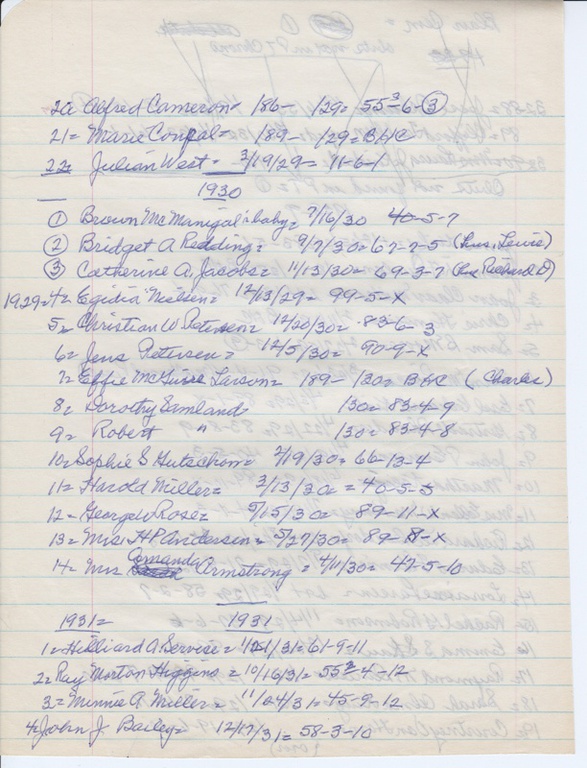 20 Alfred Cameron= 186- /29= 55³-6-③
21= Marie Conpal= /89- /29= B&C
22= Julian West= 2/19/29= 11-6-1
1930
① Brown McManigal baby= 7/16/30 40-5-7
② Bridget A Redding= 9/7/30= 67-7-5 (hus, Lewis)
③ Catherine A. Jacobs= 11/13/30= 69-3-7 (hus Richard D)
1929=4= Egidia Nielsen= 12/13/29= 99-5-X
5= Christian W Petersen= 12/20/30= 83-6-3
6= Jens Petersen= 12/5/30= 90-9-X
7= Effie McGuire Larson= 189- /30= B&C (Charles)
8= Dorothy Samland /30= 83-4-9
9= Robert " /30= 83-4-8
10= Sophie S Gutschow= 2/19/30= 66-13-4
11= Harold Miller= 3/13/30= 40-5-5
12= George W Rose= 5/15/30= 89-11-X
13= Mrs HP Andersen= 5/27/30= 89-8-X
14= Mrs Comanda Armstrong= 4/11/30= 47-5-10
1931= 1931
1= Hilliard A. Service= /31= 61-9-11
2= Ray Morton Higgins= 10/16/31= 55²-4-12
3= Minnie A. Miller= 11/04/31= 45-9-12
4= John J. Bailey= 12/17/31= 58-3-10